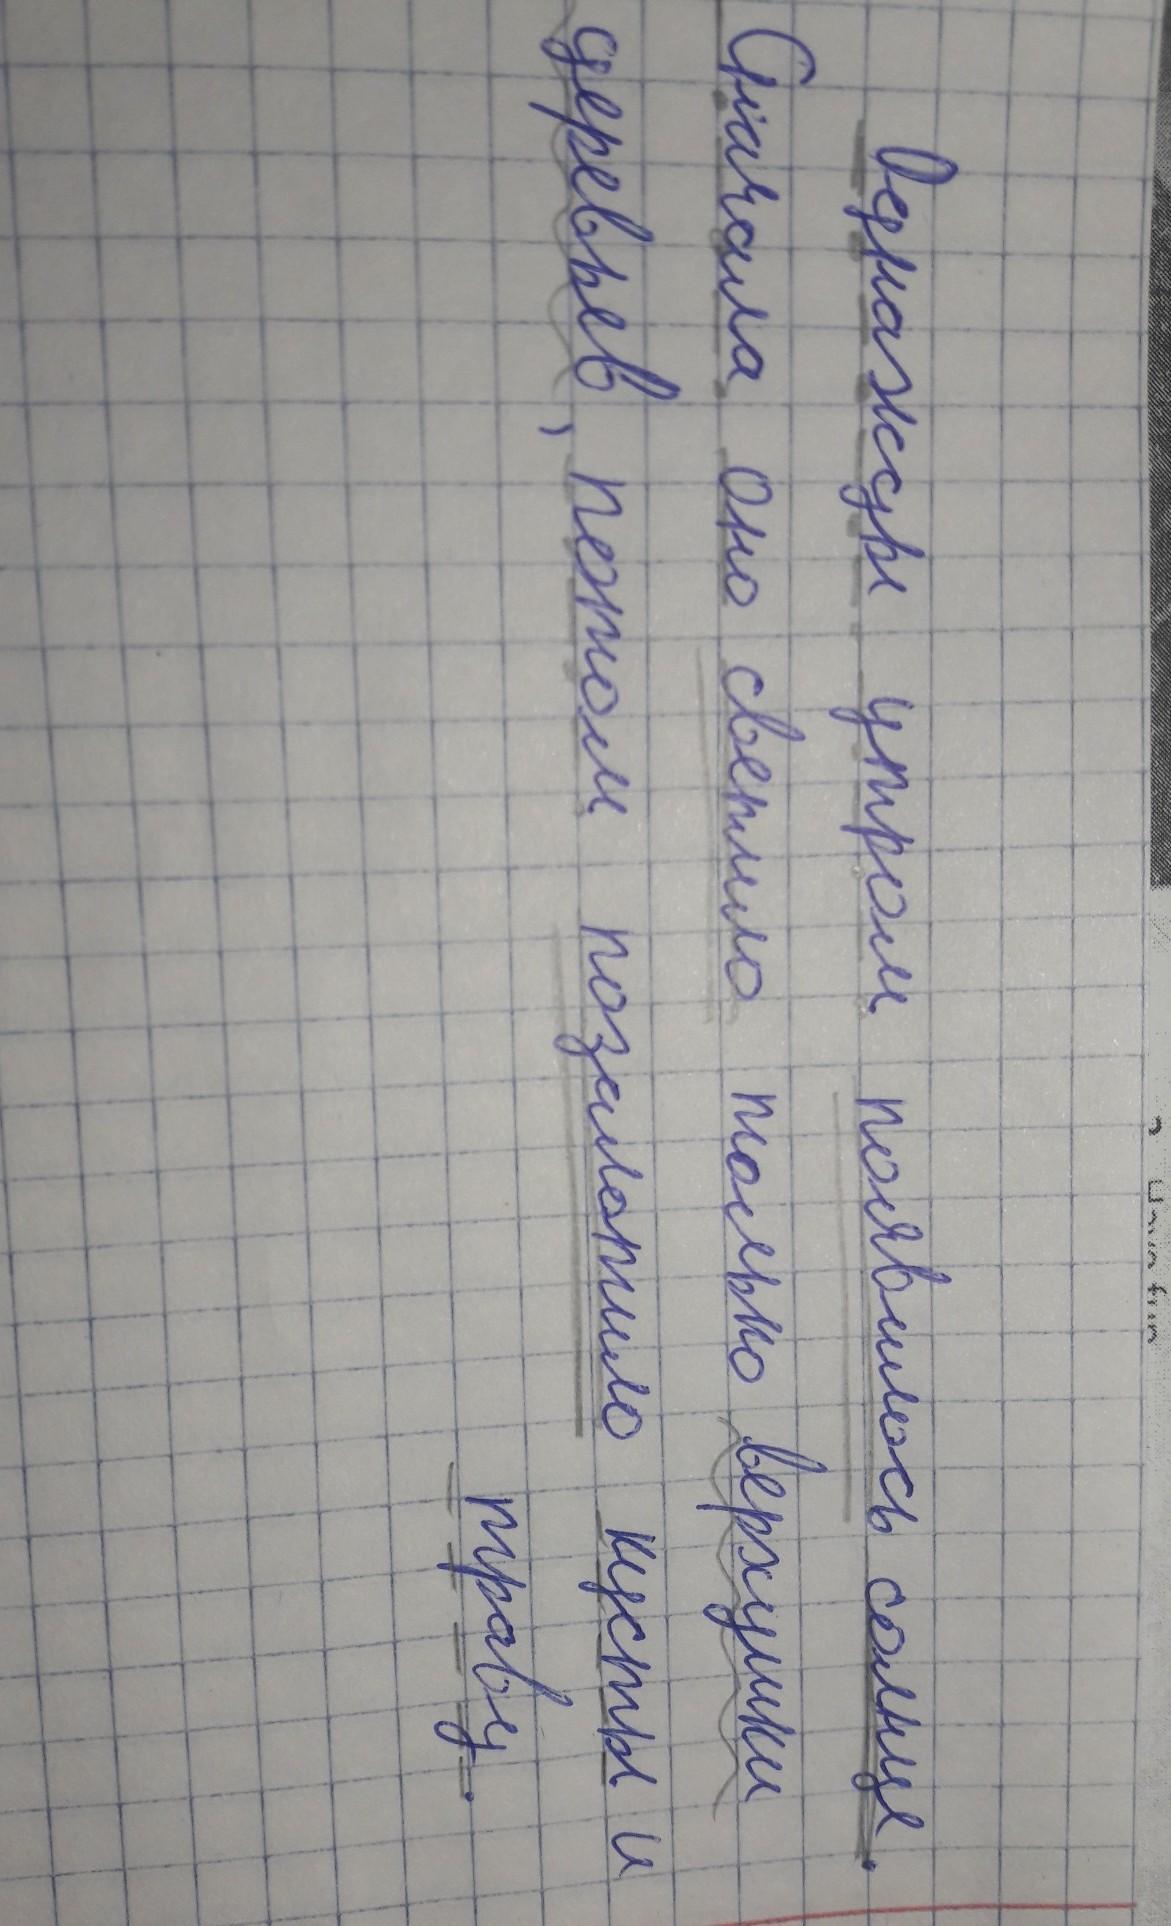 Однажды утром появилось солнце.
Сначала оно светило только верхушки
деревьев, потом позолотило кусты и
траву.